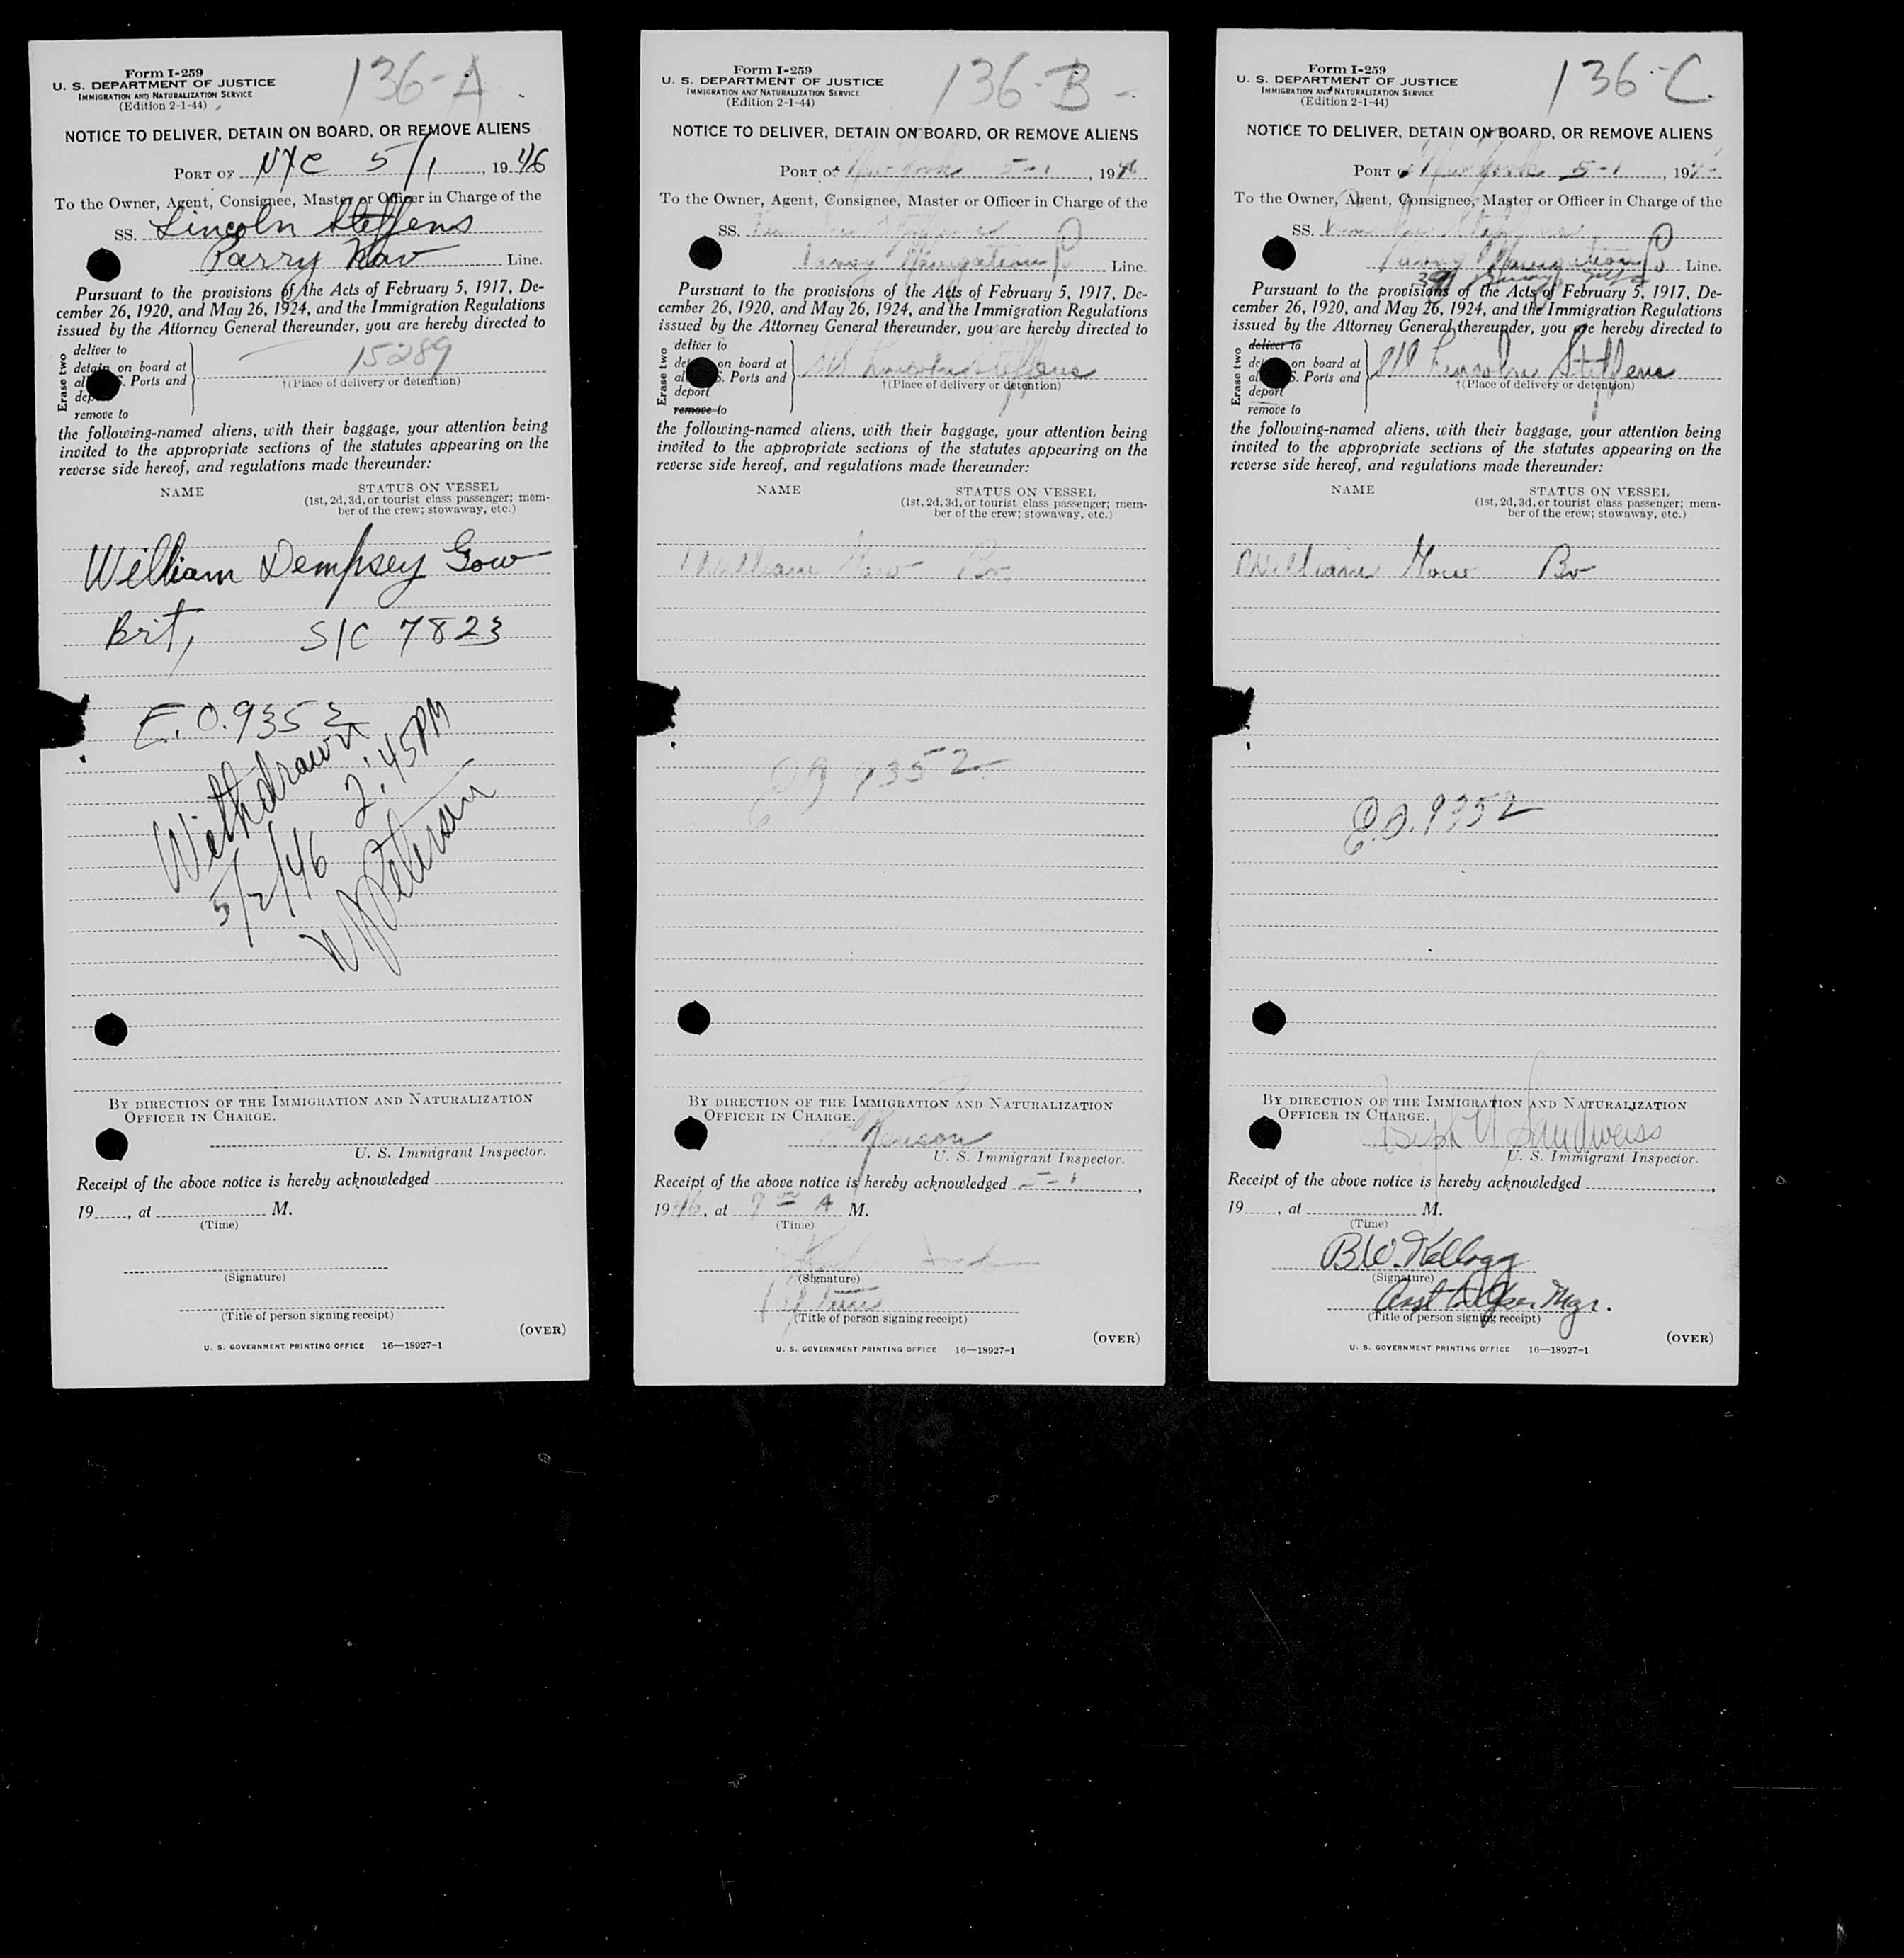 Form I-259
U. S. DEPARTMENT OF JUSTICE
IMMIGRATION AND NATURALIZATION SERVICE
(Edition 2-1-44)
136-A
NOTICE TO DELIVER, DETAIN ON BOARD, OR REMOVE ALIENS
PORT OF NYC 5/1, 1946
To the Owner, Agent, Consignee, Master or Officer in Charge of the
SS. Lincoln Steffens
Parry Nav Line.
Pursuant to the provisions of the Acts of February 5, 1917, De-
cember 26, 1920, and May 26, 1924, and the Immigration Regulations
issued by the Attorney General thereunder, you are hereby directed to
Erase two
deliver to
detain on board at
Ports and
remove to
15289
†(Place of delivery or detention)
the following-named aliens, with their baggage, your attention being
invited to the appropriate sections of the statutes appearing on the
reverse side hereof, and regulations made thereunder:
NAME STATUS ON VESSEL
(1st, 2d, 3d, or tourist class passenger; mem-
ber of the crew; stowaway, etc.)
William Dempsey Gow
Brit, S/C 7823
E.O. 9352
Withdrawn
5/2/46 2:45PM
BY DIRECTION OF THE IMMIGRATION AND NATURALIZATION
OFFICER IN CHARGE.
U. S. Immigrant Inspector.
Receipt of the above notice is hereby acknowledged
19, at M.
(Time)
(Signature)
(Title of person signing receipt)
(OVER)
U. S. GOVERNMENT PRINTING OFFICE 16—18927-1
Form I-259
U. S. DEPARTMENT OF JUSTICE
IMMIGRATION AND NATURALIZATION SERVICE
(Edition 2-1-44)
136-B
NOTICE TO DELIVER, DETAIN ON BOARD, OR REMOVE ALIENS
PORT OF New York 5-1, 1946
To the Owner, Agent, Consignee, Master or Officer in Charge of the
SS.
Parry Navigation Co Line.
Pursuant to the provisions of the Acts of February 5, 1917, De-
cember 26, 1920, and May 26, 1924, and the Immigration Regulations
issued by the Attorney General thereunder, you are hereby directed to
Erase two
deliver to
on board at
Ports and
deport
remove to
SS Lincoln Steffens
†(Place of delivery or detention)
the following-named aliens, with their baggage, your attention being
invited to the appropriate sections of the statutes appearing on the
reverse side hereof, and regulations made thereunder:
NAME STATUS ON VESSEL
(1st, 2d, 3d, or tourist class passenger; mem-
ber of the crew; stowaway, etc.)
William Gow Br
EO 9352
BY DIRECTION OF THE IMMIGRATION AND NATURALIZATION
OFFICER IN CHARGE.
U. S. Immigrant Inspector.
Receipt of the above notice is hereby acknowledged 5-1,
1946, at 7 00 A M.
(Time)
(Signature)
(Title of person signing receipt)
(OVER)
U. S. GOVERNMENT PRINTING OFFICE 16—18927-1
Form I-259
U. S. DEPARTMENT OF JUSTICE
IMMIGRATION AND NATURALIZATION SERVICE
(Edition 2-1-44)
136-C
NOTICE TO DELIVER, DETAIN ON BOARD, OR REMOVE ALIENS
PORT OF New York 5-1, 194
To the Owner, Agent, Consignee, Master or Officer in Charge of the
SS. Lincoln Steffens
Parry Navigation Co Line.
Pursuant to the provisions of the Acts of February 5, 1917, De-
cember 26, 1920, and May 26, 1924, and the Immigration Regulations
issued by the Attorney General thereunder, you are hereby directed to
Erase two
deliver to
on board at
Ports and
deport
remove to
SS Lincoln Steffens
†(Place of delivery or detention)
the following-named aliens, with their baggage, your attention being
invited to the appropriate sections of the statutes appearing on the
reverse side hereof, and regulations made thereunder:
NAME STATUS ON VESSEL
(1st, 2d, 3d, or tourist class passenger; mem-
ber of the crew; stowaway, etc.)
William Gow Br
E.O. 9352
BY DIRECTION OF THE IMMIGRATION AND NATURALIZATION
OFFICER IN CHARGE.
Sandweiss
U. S. Immigrant Inspector.
Receipt of the above notice is hereby acknowledged,
19, at M.
(Time)
B.W. Kellogg
(Signature)
Asst Mgr.
(Title of person signing receipt)
(OVER)
U. S. GOVERNMENT PRINTING OFFICE 16—18927-1